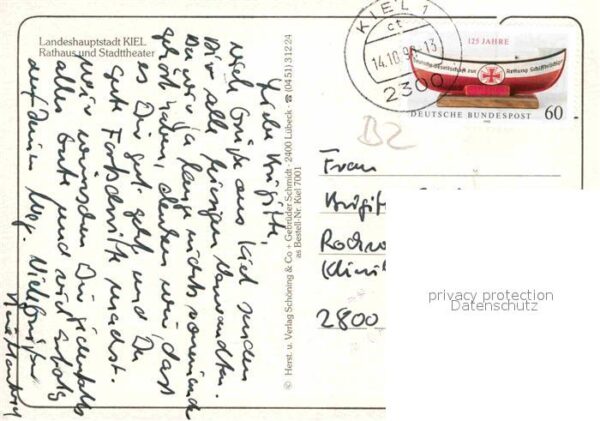 Landeshauptstadt KIEL
Rathaus und Stadttheater
Liebe Brigitte,
viele Grüße aus Kiel senden
Dir alle hiesigen Verwandten.
Da wir ja lange nichts voneinander
gehört haben, denken wir, dass
es Dir gut geht und Du
gute Fortschritte machst.
Wir wünschen Dir jedenfalls
alles Gute und viel Erfolg
auf Deinem Weg. Viele Grüße
© Herst. u. Verlag Schöning & Co + Gebrüder Schmidt · 2400 Lübeck · ☎ (04 51) 3 12 24
as Bestell-Nr. Kiel 7001
KIEL 1
ct
14.10.90-13
2300
125 JAHRE
Deutsche Gesellschaft zur Rettung Schiffbrüchiger
DEUTSCHE BUNDESPOST
60
1990
B2
Frau
Brigitt
2800
privacy protection
Datenschutz